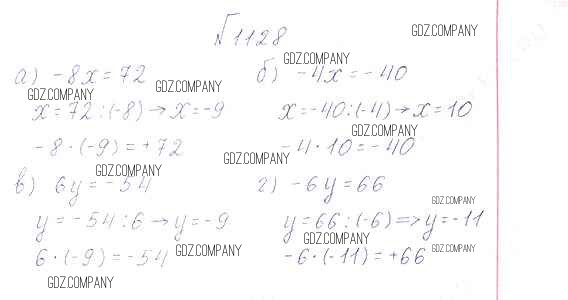 №1128
GDZ.COMPANY
GDZ.COMPANY
а) -8x = 72
б) -4x = -40
GDZ.COMPANY
GDZ.COMPANY
x = 72 : (-8) → x = -9
x = -40 : (-4) → x = 10
GDZ.COMPANY
-8 · (-9) = +72
-4 · 10 = -40
GDZ.COMPANY
GDZ.COMPANY
в) 6y = -54
г) -6y = 66
GDZ.COMPANY
y = -54 : 6 → y = -9
y = 66 : (-6) => y = -11
GDZ.COMPANY
6 · (-9) = -54
GDZ.COMPANY
-6 · (-11) = +66
GDZ.COMPANY
GDZ.COMPANY